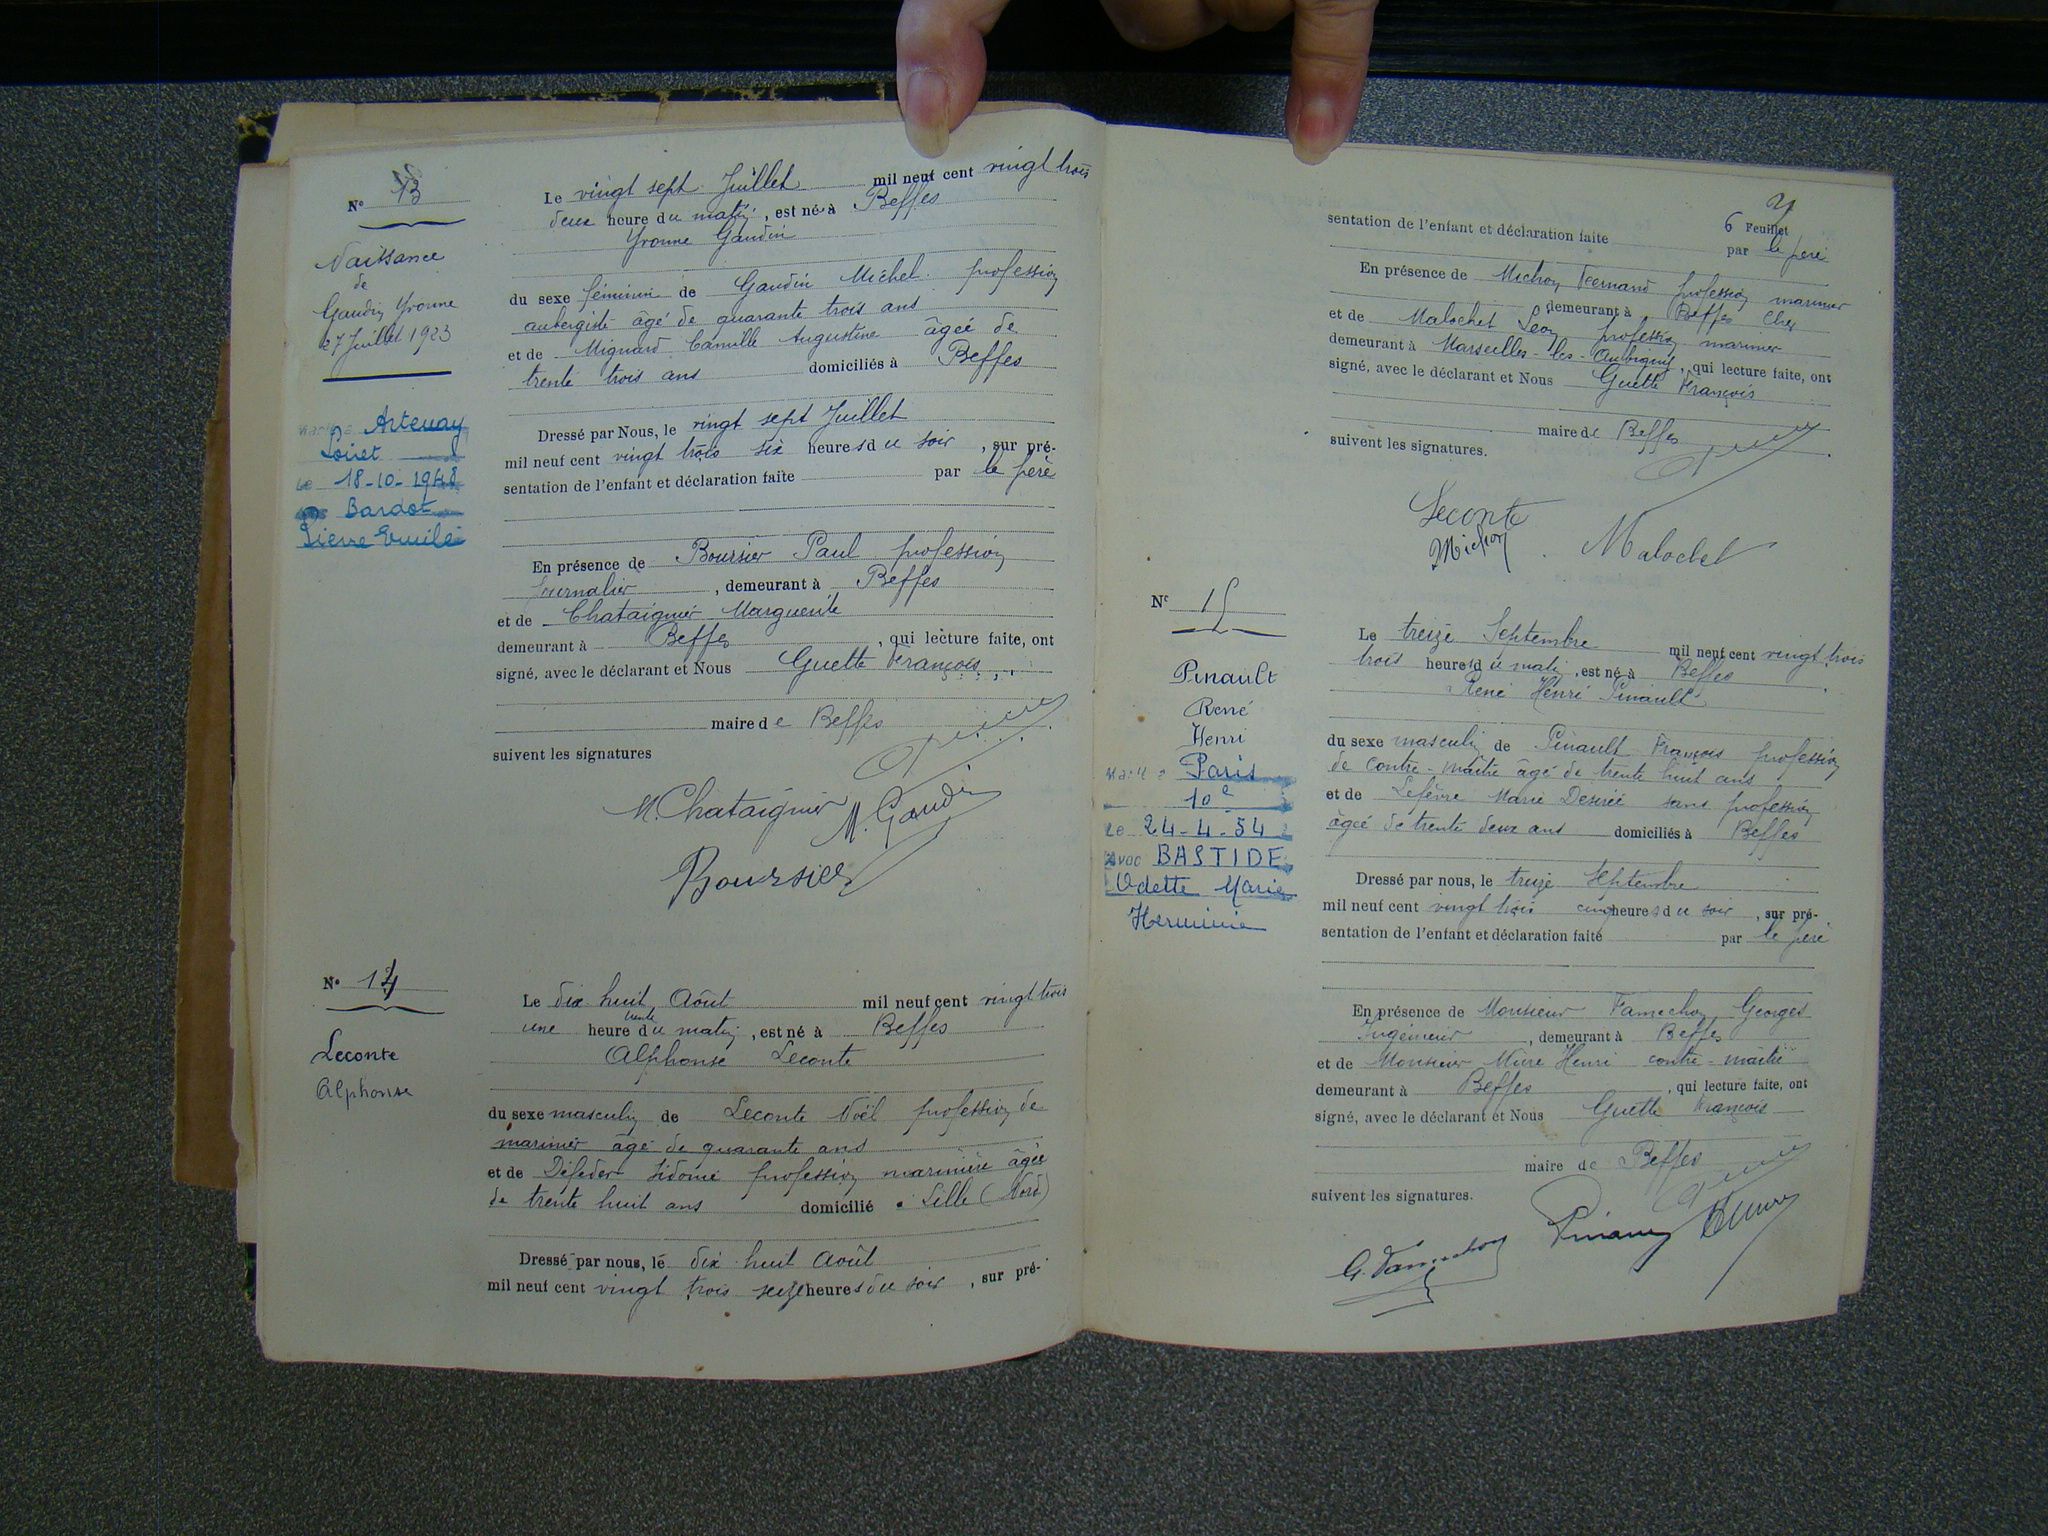 N° 13
Naissance
de
Gaudin Yvonne
27 Juillet 1923
Marié à Artenay
Loiret
Le 18-10-1948
avec Bardot
Pierre Emile
Le vingt sept Juillet mil neuf cent vingt trois
deux heure du matin, est né à Beffes
Yvonne Gaudin
du sexe féminin de Gaudin Michel profession
aubergiste âgé de quarante trois ans
et de Mignard Camille Augustine âgée de
trente trois ans domiciliés à Beffes
Dressé par Nous, le vingt sept Juillet
mil neuf cent vingt trois six heures du soir, sur pré-
sentation de l'enfant et déclaration faite par le père
En présence de Boursier Paul profession
Journalier, demeurant à Beffes
et de Chataignier Marguerite
demeurant à Beffes, qui lecture faite, ont
signé, avec le déclarant et Nous Guette François
maire de Beffes
suivent les signatures
M. Chataignier M. Gaudin
Boursier
N° 14
Leconte
Alphonse
Le dix huit Août mil neuf cent vingt trois
une heure trente du matin, est né à Beffes
Alphonse Leconte
du sexe masculin de Leconte Noël profession de
marinier âgé de quarante ans
et de Défeder Sidonie profession marinière âgée
de trente huit ans domicilié à Lille (Nord)
Dressé par nous, le dix huit Août
mil neuf cent vingt trois seize heures du soir, sur pré-
6 Feuillet
sentation de l'enfant et déclaration faite par le père
En présence de Michon Fernand profession marinier
demeurant à Beffes Cher
et de Malochet Léon profession marinier
demeurant à Marseilles-les-Aubigny, qui lecture faite, ont
signé, avec le déclarant et Nous Guette François
maire de Beffes
suivent les signatures.
Leconte
Michon Malochet
N° 15
Pinault
René
Henri
Marié à Paris
10e
Le 24-4-54
avec BASTIDE
Odette Marie
Herminie
Le treize Septembre mil neuf cent vingt trois
trois heures du matin, est né à Beffes
René Henri Pinault
du sexe masculin de Pinault François profession
de contre-maître âgé de trente huit ans
et de Lefèvre Marie Desirée sans profession
âgée de trente deux ans domiciliés à Beffes
Dressé par nous, le treize Septembre
mil neuf cent vingt trois cinq heures du soir, sur pré-
sentation de l'enfant et déclaration faite par le père
En présence de Monsieur Famechon Georges
Ingénieur, demeurant à Beffes
et de Monsieur Mure Henri contre-maître
demeurant à Beffes, qui lecture faite, ont
signé, avec le déclarant et Nous Guette François
maire de Beffes
suivent les signatures.
G. Famechon